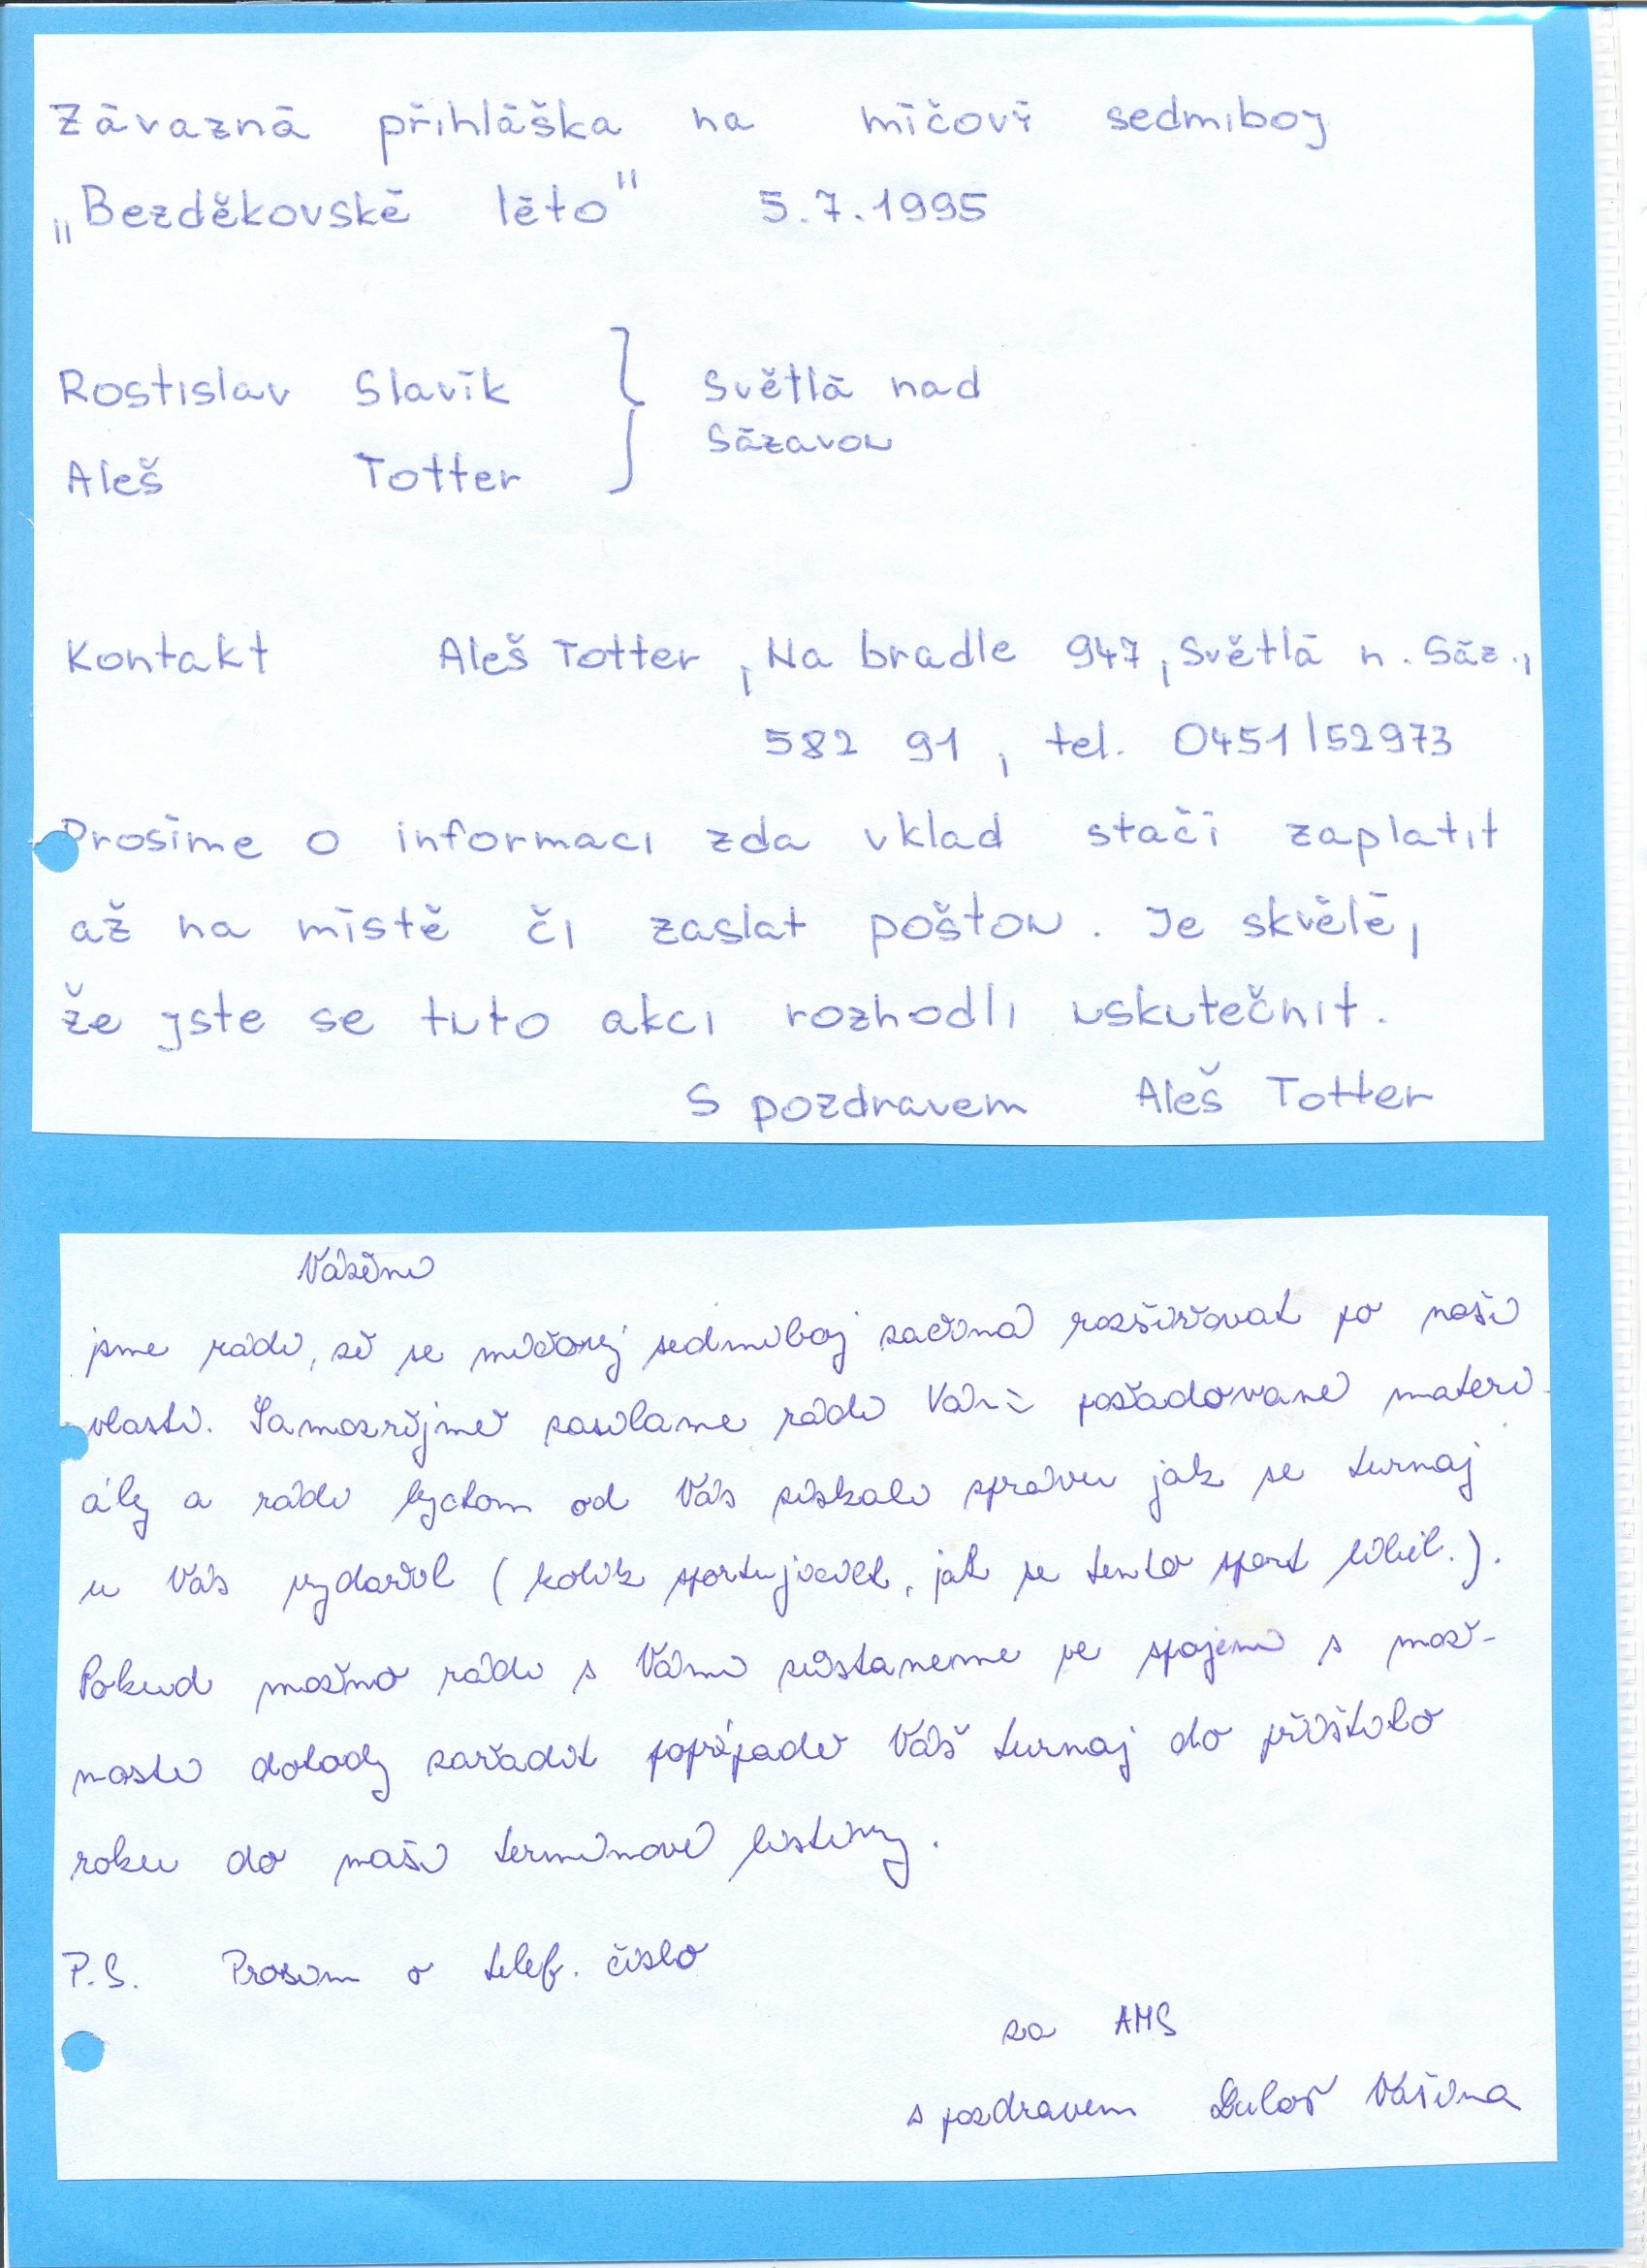 Závazná přihláška na míčový sedmiboj
„Bezděkovské léto" 5.7.1995
Rostislav Slavík } Světlá nad
Sázavou
Aleš Totter
Kontakt Aleš Totter, Na bradle 947, Světlá n. Sáz.,
582 91, tel. 0451/52973
Prosíme o informaci zda vklad stačí zaplatit
až na místě či zaslat poštou. Je skvělé,
že jste se tuto akci rozhodli uskutečnit.
S pozdravem Aleš Totter
Vážení
jsme rádi, že se míčový sedmiboj začíná rozšiřovat po naší
vlasti. Samozřejmě zasíláme rádi Vámi požadované materi-
ály a rádi bychom od Vás získali zprávu jak se turnaj
u Vás vydařil (kolik sportujících, jak se tento sport líbil.).
Pokud možno rádi s Vámi zůstaneme ve spojení s mož-
ností dohody zařadit popřípadě Váš turnaj do příštího
roku do naší termínové listiny.
P.S. Prosím o telef. číslo
za AMS
s pozdravem Luboš